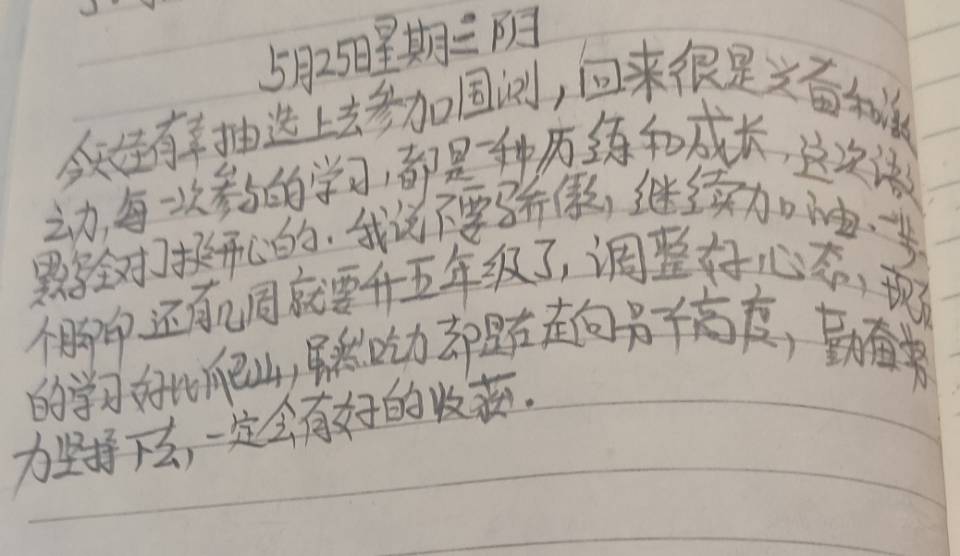 5月25日星期三 阴
今天娃有幸抽选上去参加国测,回来很是兴奋和激
动,每一次参与的学习,都是一种历练和成长,这次语文
默写全对了挺开心的.我说不要骄傲,继续加油.一步
个脚印 还有几周就要升五年级了,调整好心态,现在
的学习好比爬山,虽然吃力却是在走向另一个高度,勤奋努
力坚持下去,一定会有好的收获.